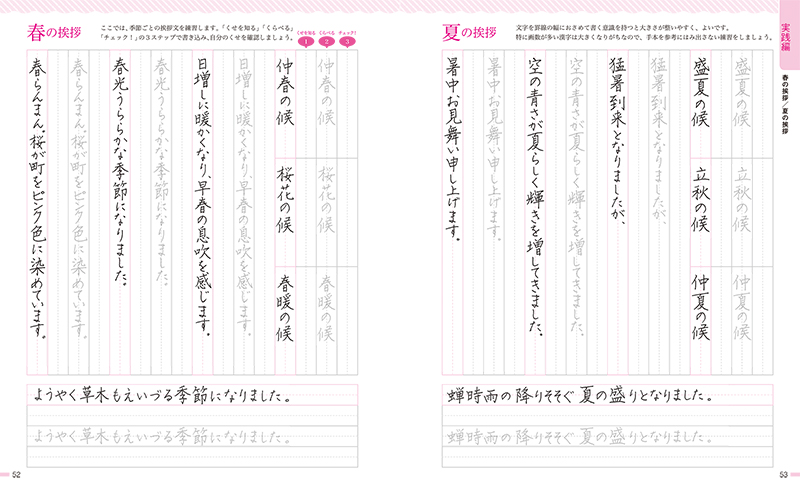 春の挨拶
ここでは、季節ごとの挨拶文を練習します。「くせを知る」「くらべる」
「チェック!」の3ステップで書き込み、自分のくせを確認しましょう。
くせを知る くらべる チェック!
1 2 3
仲春の候 桜花の候 春暖の候
仲春の候 桜花の候 春暖の候
日増しに暖かくなり、早春の息吹を感じます。
日増しに暖かくなり、早春の息吹を感じます。
春光うららかな季節になりました。
春光うららかな季節になりました。
春らんまん。桜が町をピンク色に染めています。
春らんまん。桜が町をピンク色に染めています。
ようやく草木もえいづる季節になりました。
ようやく草木もえいづる季節になりました。
52
夏の挨拶
文字を罫線の幅におさめて書く意識を持つと大きさが整いやすく、よいです。
特に画数が多い漢字は大きくなりがちなので、手本を参考にはみ出さない練習をしましょう。
実践編
春の挨拶/夏の挨拶
盛夏の候 立秋の候 仲夏の候
盛夏の候 立秋の候 仲夏の候
猛暑到来となりましたが、
猛暑到来となりましたが、
空の青さが夏らしく輝きを増してきました。
空の青さが夏らしく輝きを増してきました。
暑中お見舞い申し上げます。
暑中お見舞い申し上げます。
蝉時雨の降りそそぐ夏の盛りとなりました。
蝉時雨の降りそそぐ夏の盛りとなりました。
53